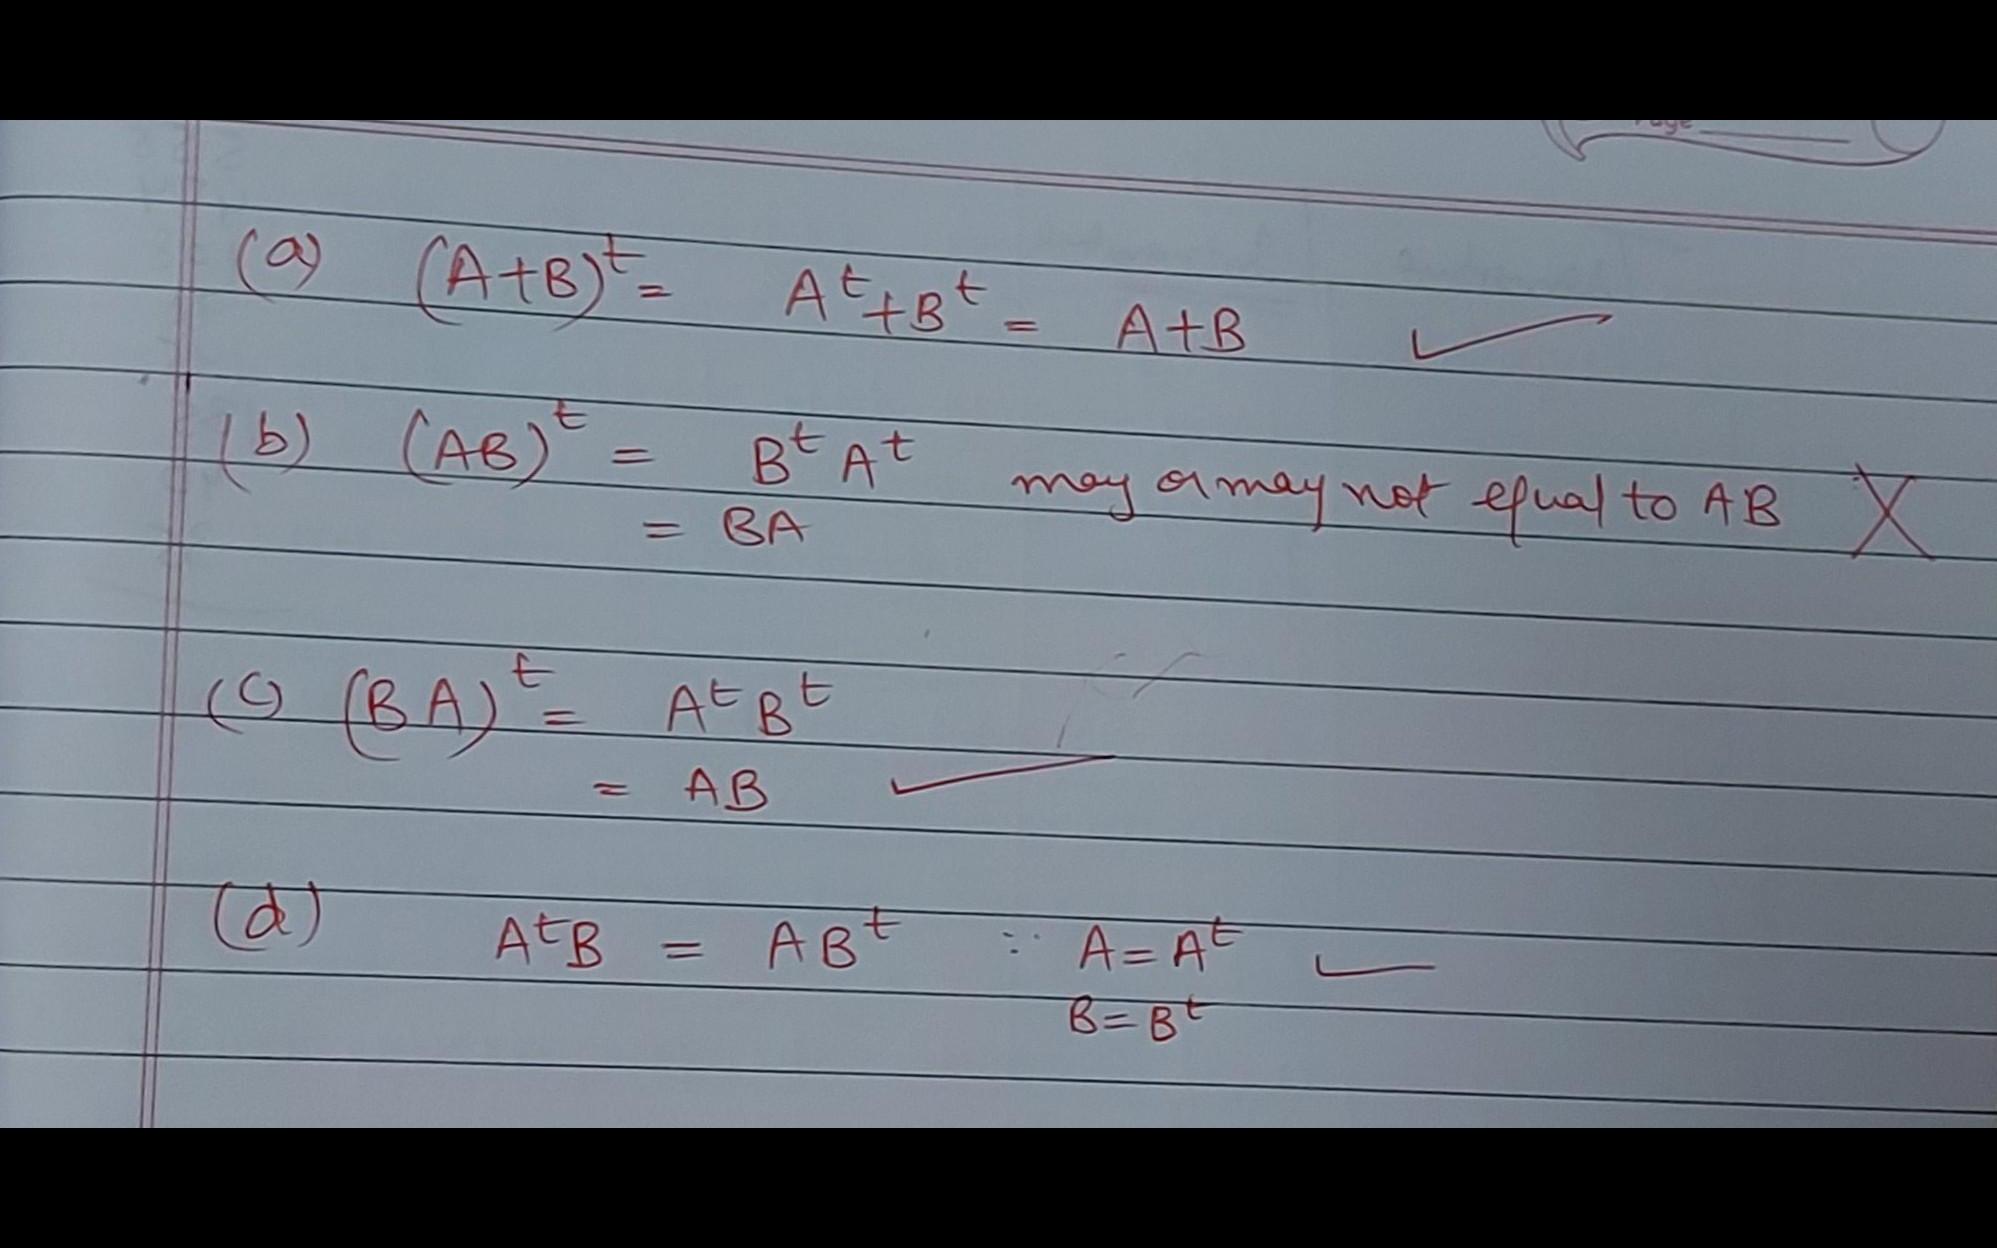 Page
(a) (A+B)ᵗ = Aᵗ+Bᵗ = A+B ✓
(b) (AB)ᵗ = BᵗAᵗ may or may not equal to AB X
= BA
(c) (BA)ᵗ = AᵗBᵗ
= AB ✓
(d) AᵗB = ABᵗ ∵ A=Aᵗ ✓
B=Bᵗ